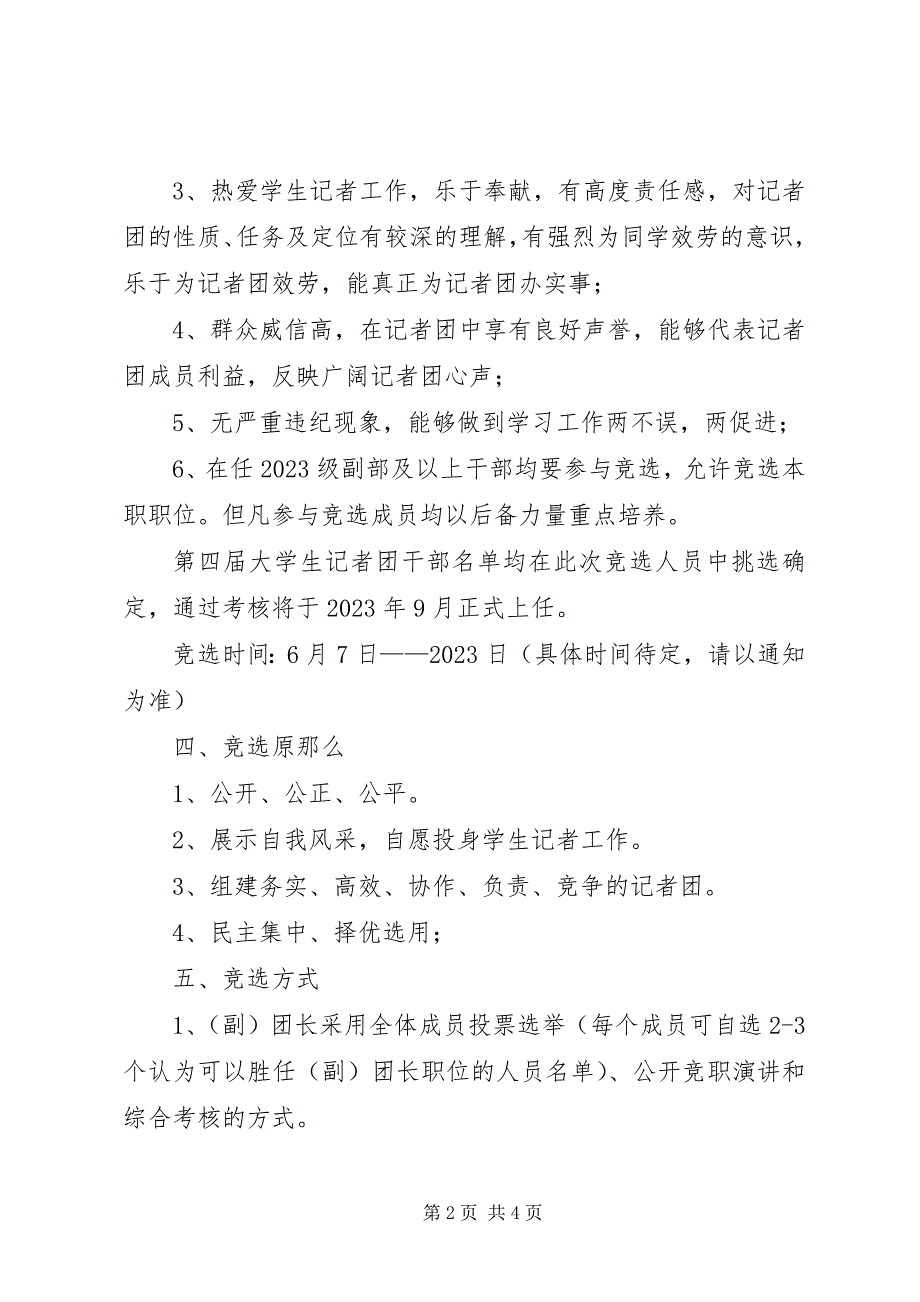 3、热爱学生记者工作，乐于奉献，有高度责任感，对记者
团的性质、任务及定位有较深的理解，有强烈为同学效劳的意识，
乐于为记者团效劳，能真正为记者团办实事；
4、群众威信高，在记者团中享有良好声誉，能够代表记者
团成员利益，反映广阔记者团心声；
5、无严重违纪现象，能够做到学习工作两不误，两促进；
6、在任 2023 级副部及以上干部均要参与竞选，允许竞选本
职职位。但凡参与竞选成员均以后备力量重点培养。
第四届大学生记者团干部名单均在此次竞选人员中挑选确
定，通过考核将于 2023 年 9 月正式上任。
竞选时间：6 月 7 日——2023 日（具体时间待定，请以通知
为准）
四、竞选原那么
1、公开、公正、公平。
2、展示自我风采，自愿投身学生记者工作。
3、组建务实、高效、协作、负责、竞争的记者团。
4、民主集中、择优选用；
五、竞选方式
1、（副）团长采用全体成员投票选举（每个成员可自选 2-3
个认为可以胜任（副）团长职位的人员名单）、公开竞职演讲和
综合考核的方式。
第 2 页 共 4 页